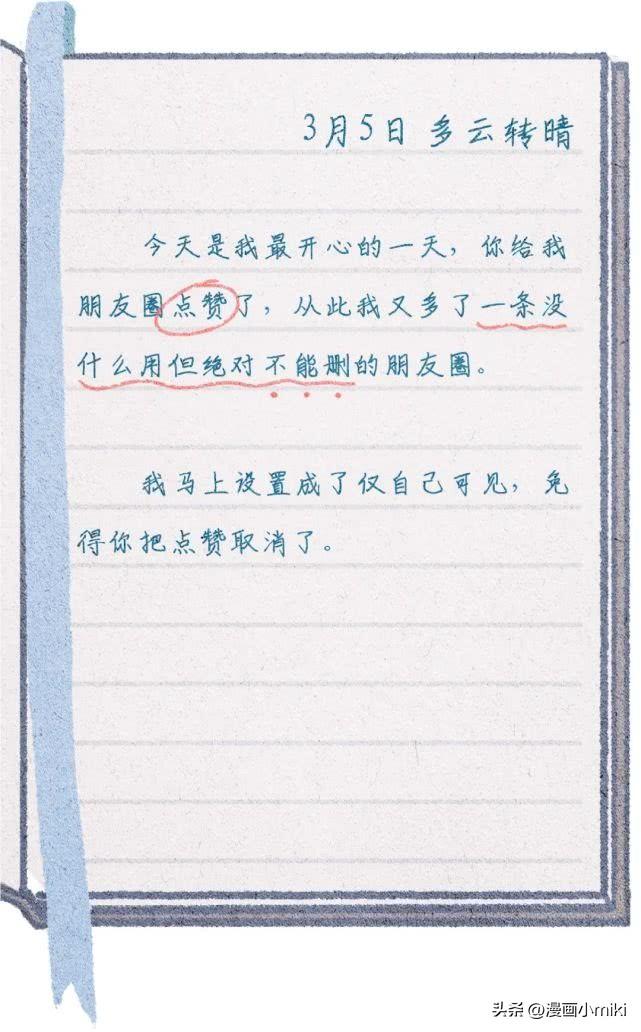 3月5日 多云转晴
今天是我最开心的一天，你给我
朋友圈点赞了，从此我又多了一条没
什么用但绝对不能删的朋友圈。
我马上设置成了仅自己可见，免
得你把点赞取消了。
头条 @漫画小miki